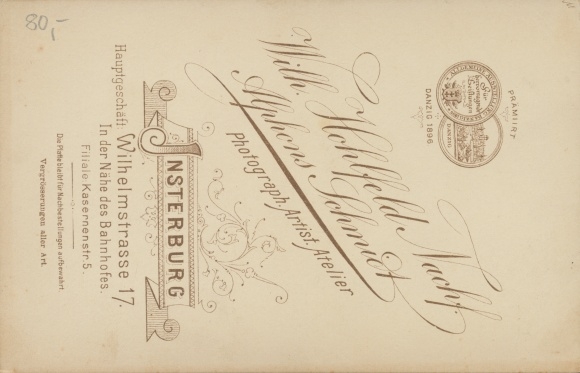 80,-
PRÄMIIRT
DANZIG 1896
Für
hervorragende
Leistungen
DANZIG
Wilh. Hohlfeld Nachf.
Alphons Schmidt
Photograph. Artist. Atelier
INSTERBURG
Hauptgeschäft: Wilhelmstrasse 17.
In der Nähe des Bahnhofes.
Filiale Kasernenstr 5.
Die Platte bleibt für Nachbestellungen aufbewahrt.
Vergrösserungen aller Art.